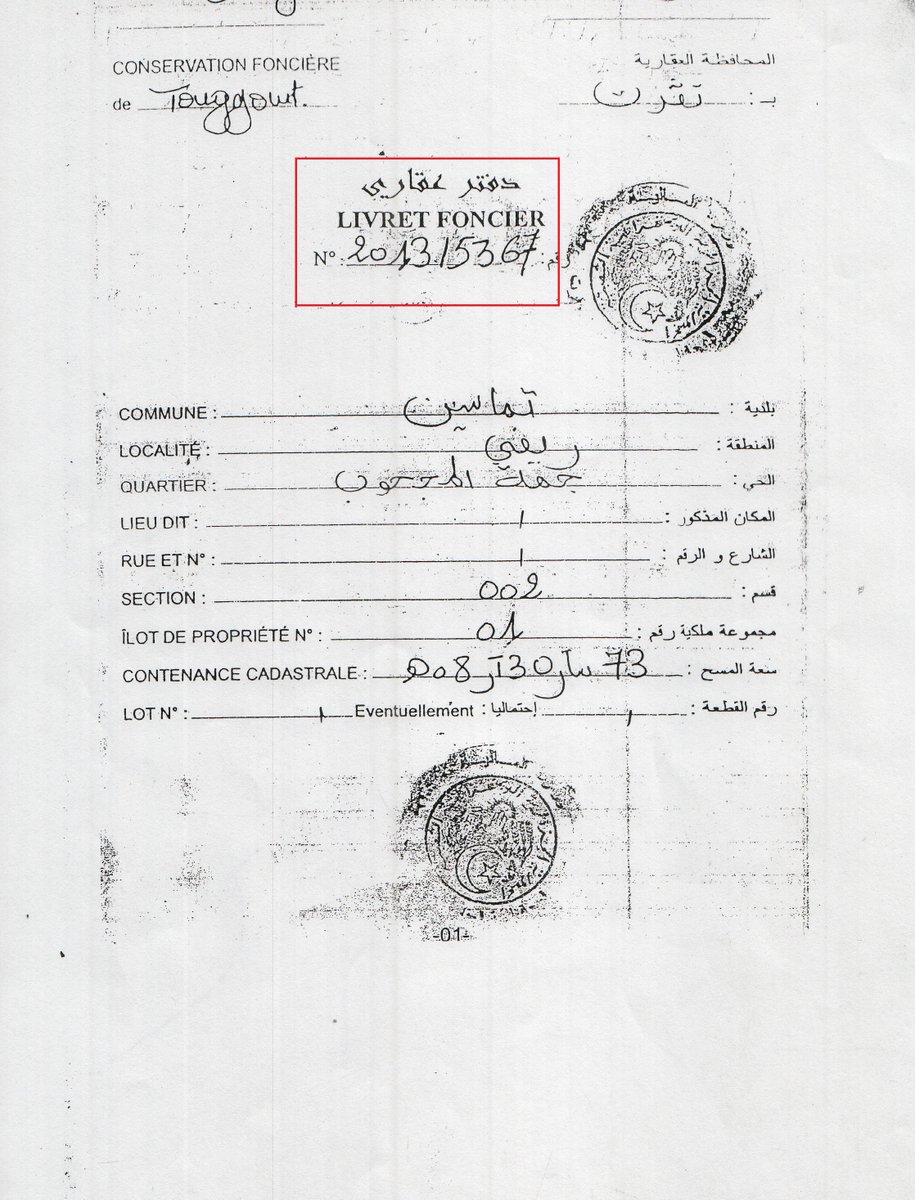 CONSERVATION FONCIÈRE المحافظة العقارية
de Touggourt. بـ : تقرت
دفتر عقاري
LIVRET FONCIER
N° : 201315367 : رقم
COMMUNE : تماسين بلدية :
LOCALITÉ : ريفي المنطقة :
QUARTIER : الحي :
LIEU DIT : / المكان المذكور :
RUE ET N° : / الشارع و الرقم :
SECTION : 002 قسم :
ÎLOT DE PROPRIÉTÉ N° : 01 مجموعة ملكية رقم :
CONTENANCE CADASTRALE : 08هـ 30آر 73سآر سعة المسح :
LOT N° : / Eventuellement إحتماليا : / رقم القطعة :
-01-